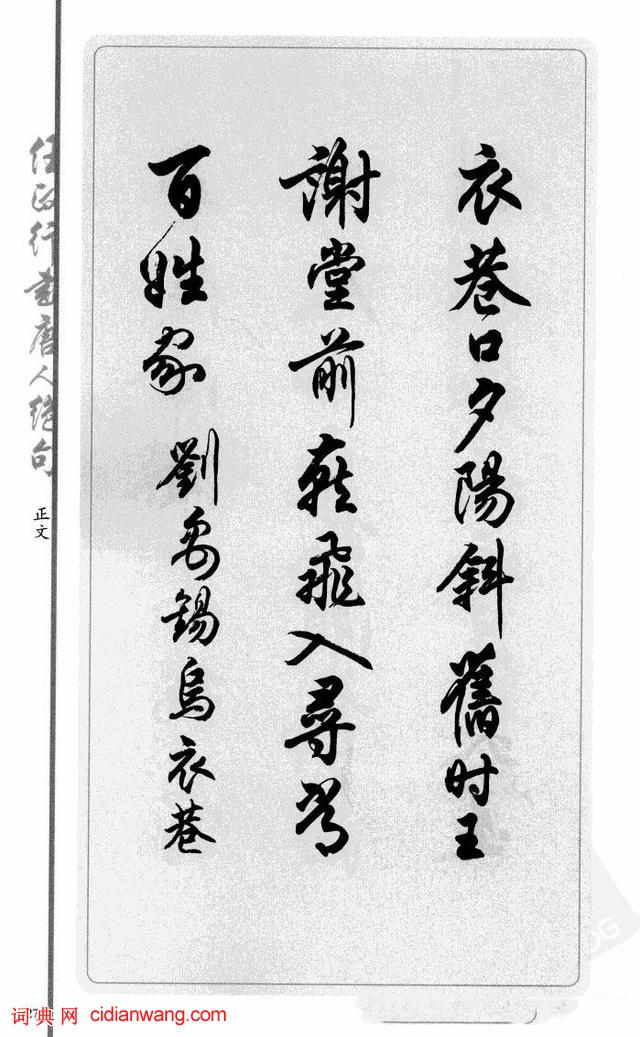 衣巷口夕陽斜舊时王
謝堂前燕飛入尋常
百姓家 劉禹錫烏衣巷
任政行書唐人絕句
正文
27
词典网 cidianwang.com